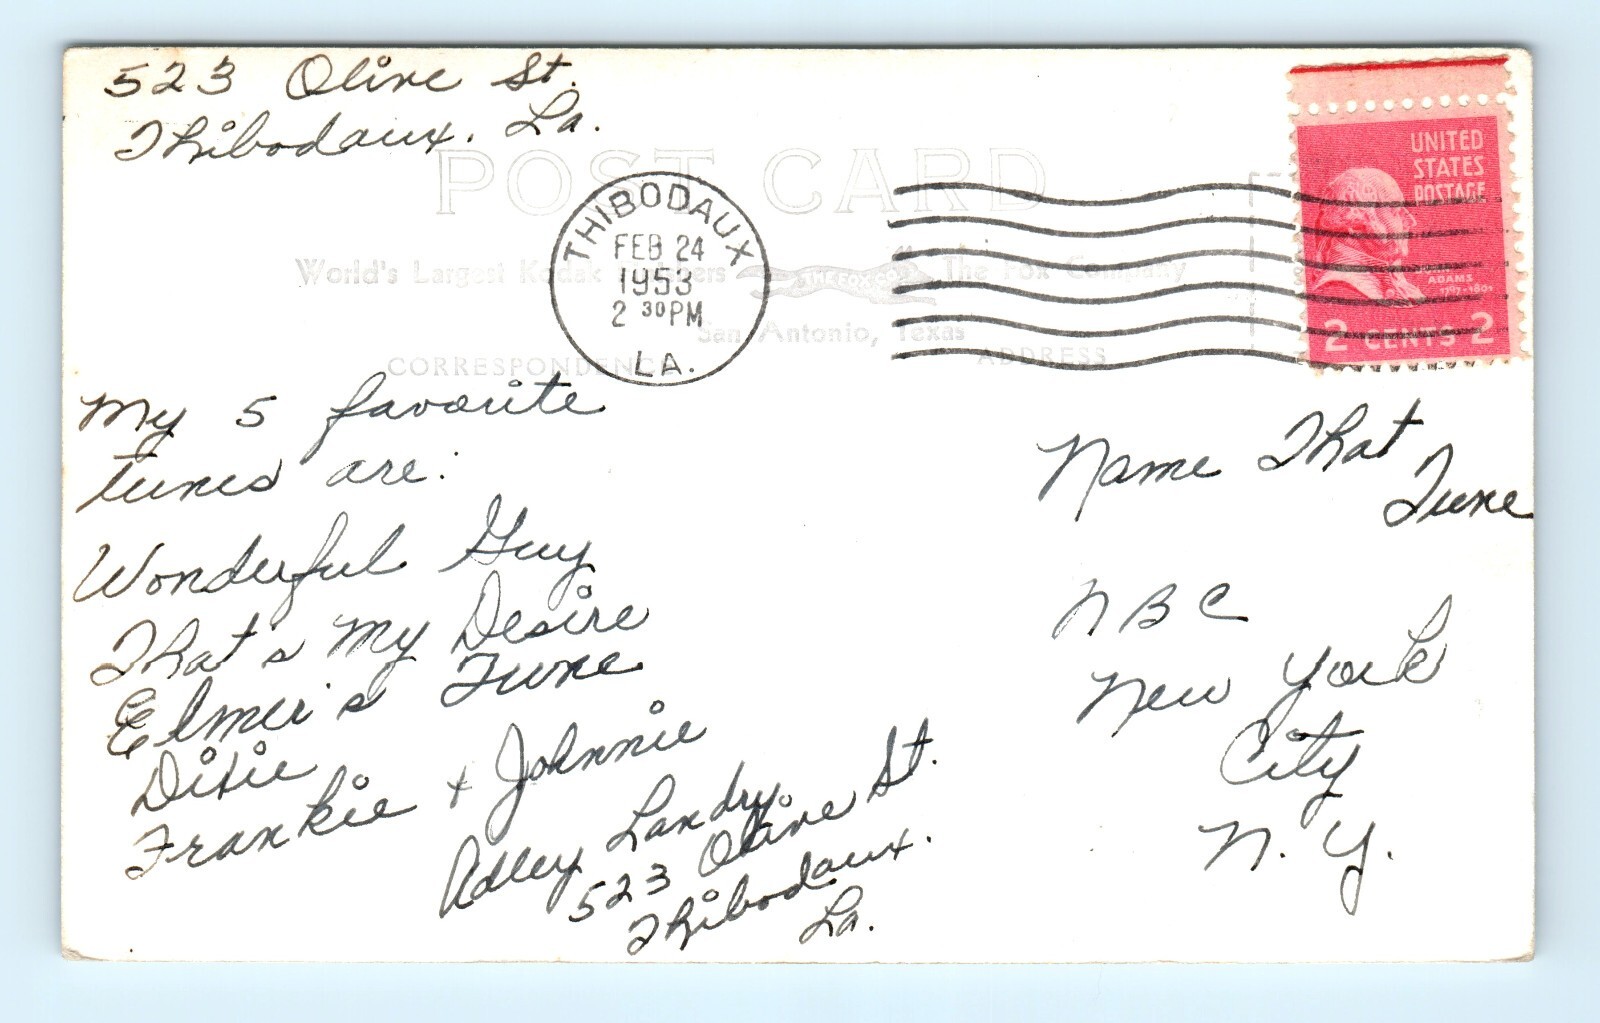 523 Olive St.
Thibodaux, La.
POST CARD
THIBODAUX
FEB 24
1953
2 30 PM
LA.
UNITED
STATES
POSTAGE
ADAMS
1797-1801
2 CENTS 2
World's Largest Kodak
THE FOX CO.
The Fox Company
San Antonio, Texas
CORRESPONDENCE
ADDRESS
My 5 favorite
tunes are:
Wonderful Guy
That's My Desire
Elmer's Tune
Dixie
Frankie + Johnnie
Adley Landry
523 Olive St.
Thibodaux.
La.
Name That
Tune
NBC
New York
City
N. Y.